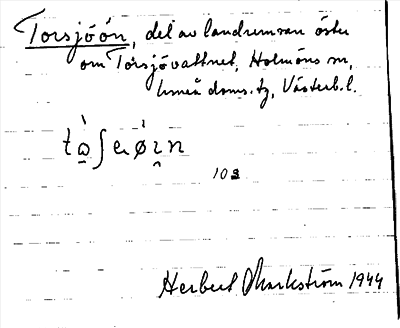 Torsjöön, del av landremsan öster
om Torsjövattnet, Holmöns sn,
Umeå doms. tg, Västerb. l.
103
Herbert Markström 1944